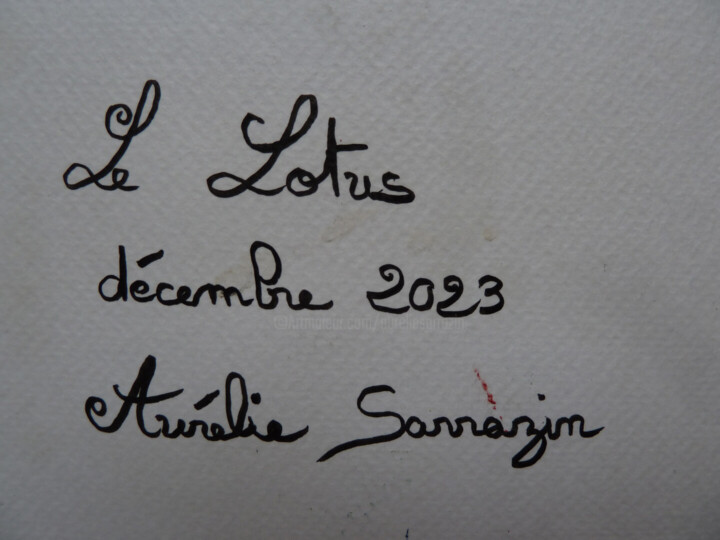 Le Lotus
décembre 2023
Aurélie Sarrazin